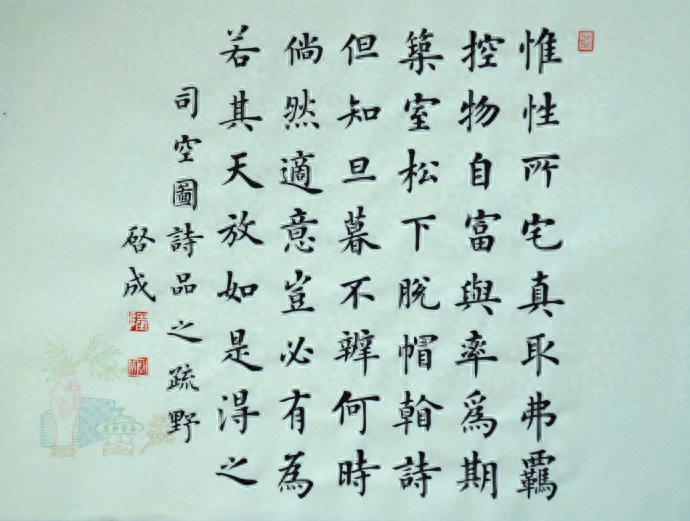 惟性所宅真取弗羈
控物自富與率爲期
築室松下脫帽㪇詩
但知旦暮不辨何時
倘然適意豈必有為
若其天放如是得之
司空圖詩品之疏野
啓成